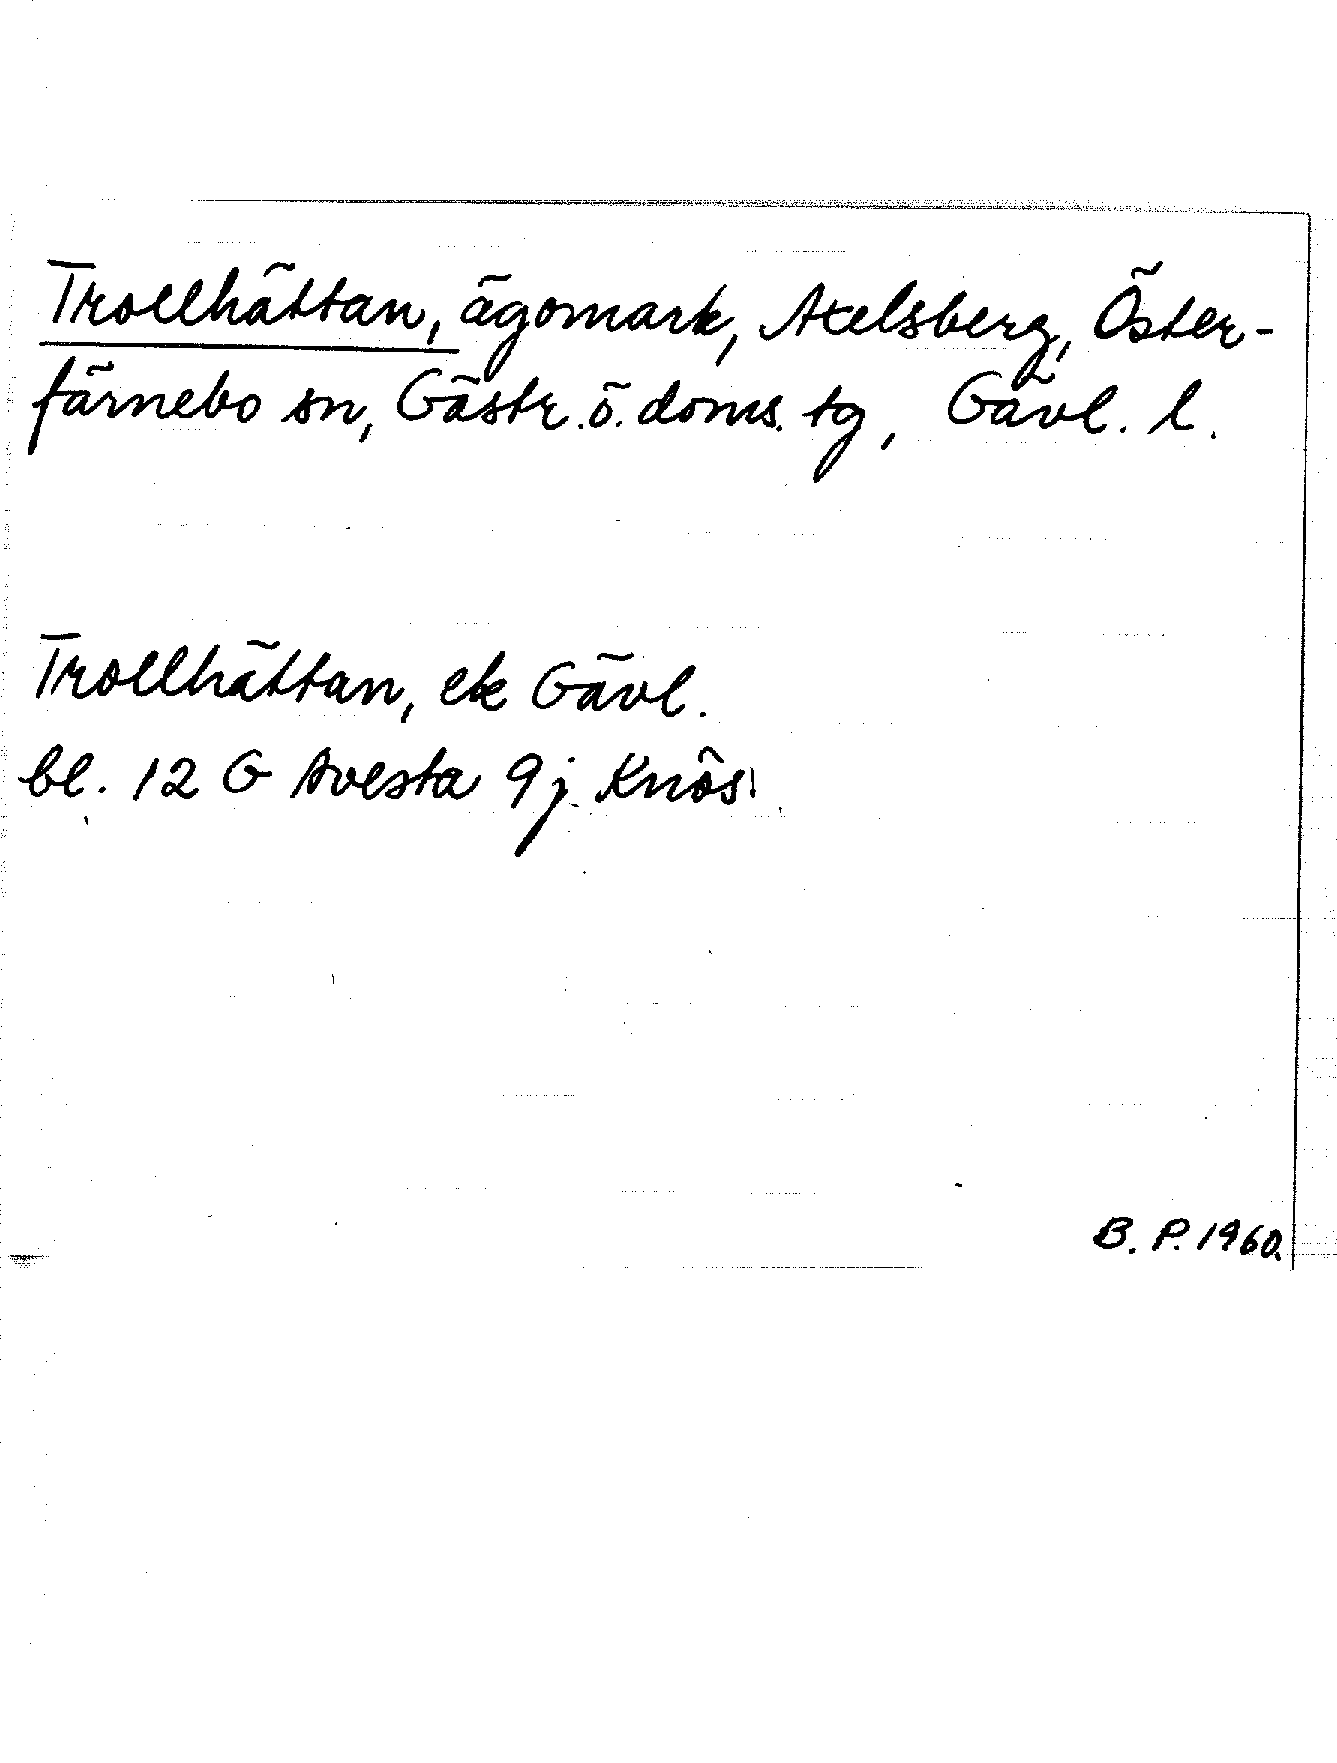 Trollhättan, ägomark, Axelsberg, Öster-
färnebo sn, Gästr. ö. doms. tg, Gävl. l.
Trollhättan, ek Gävl.
bl. 12 G Avesta 9 j Knös
B. P. 1960.